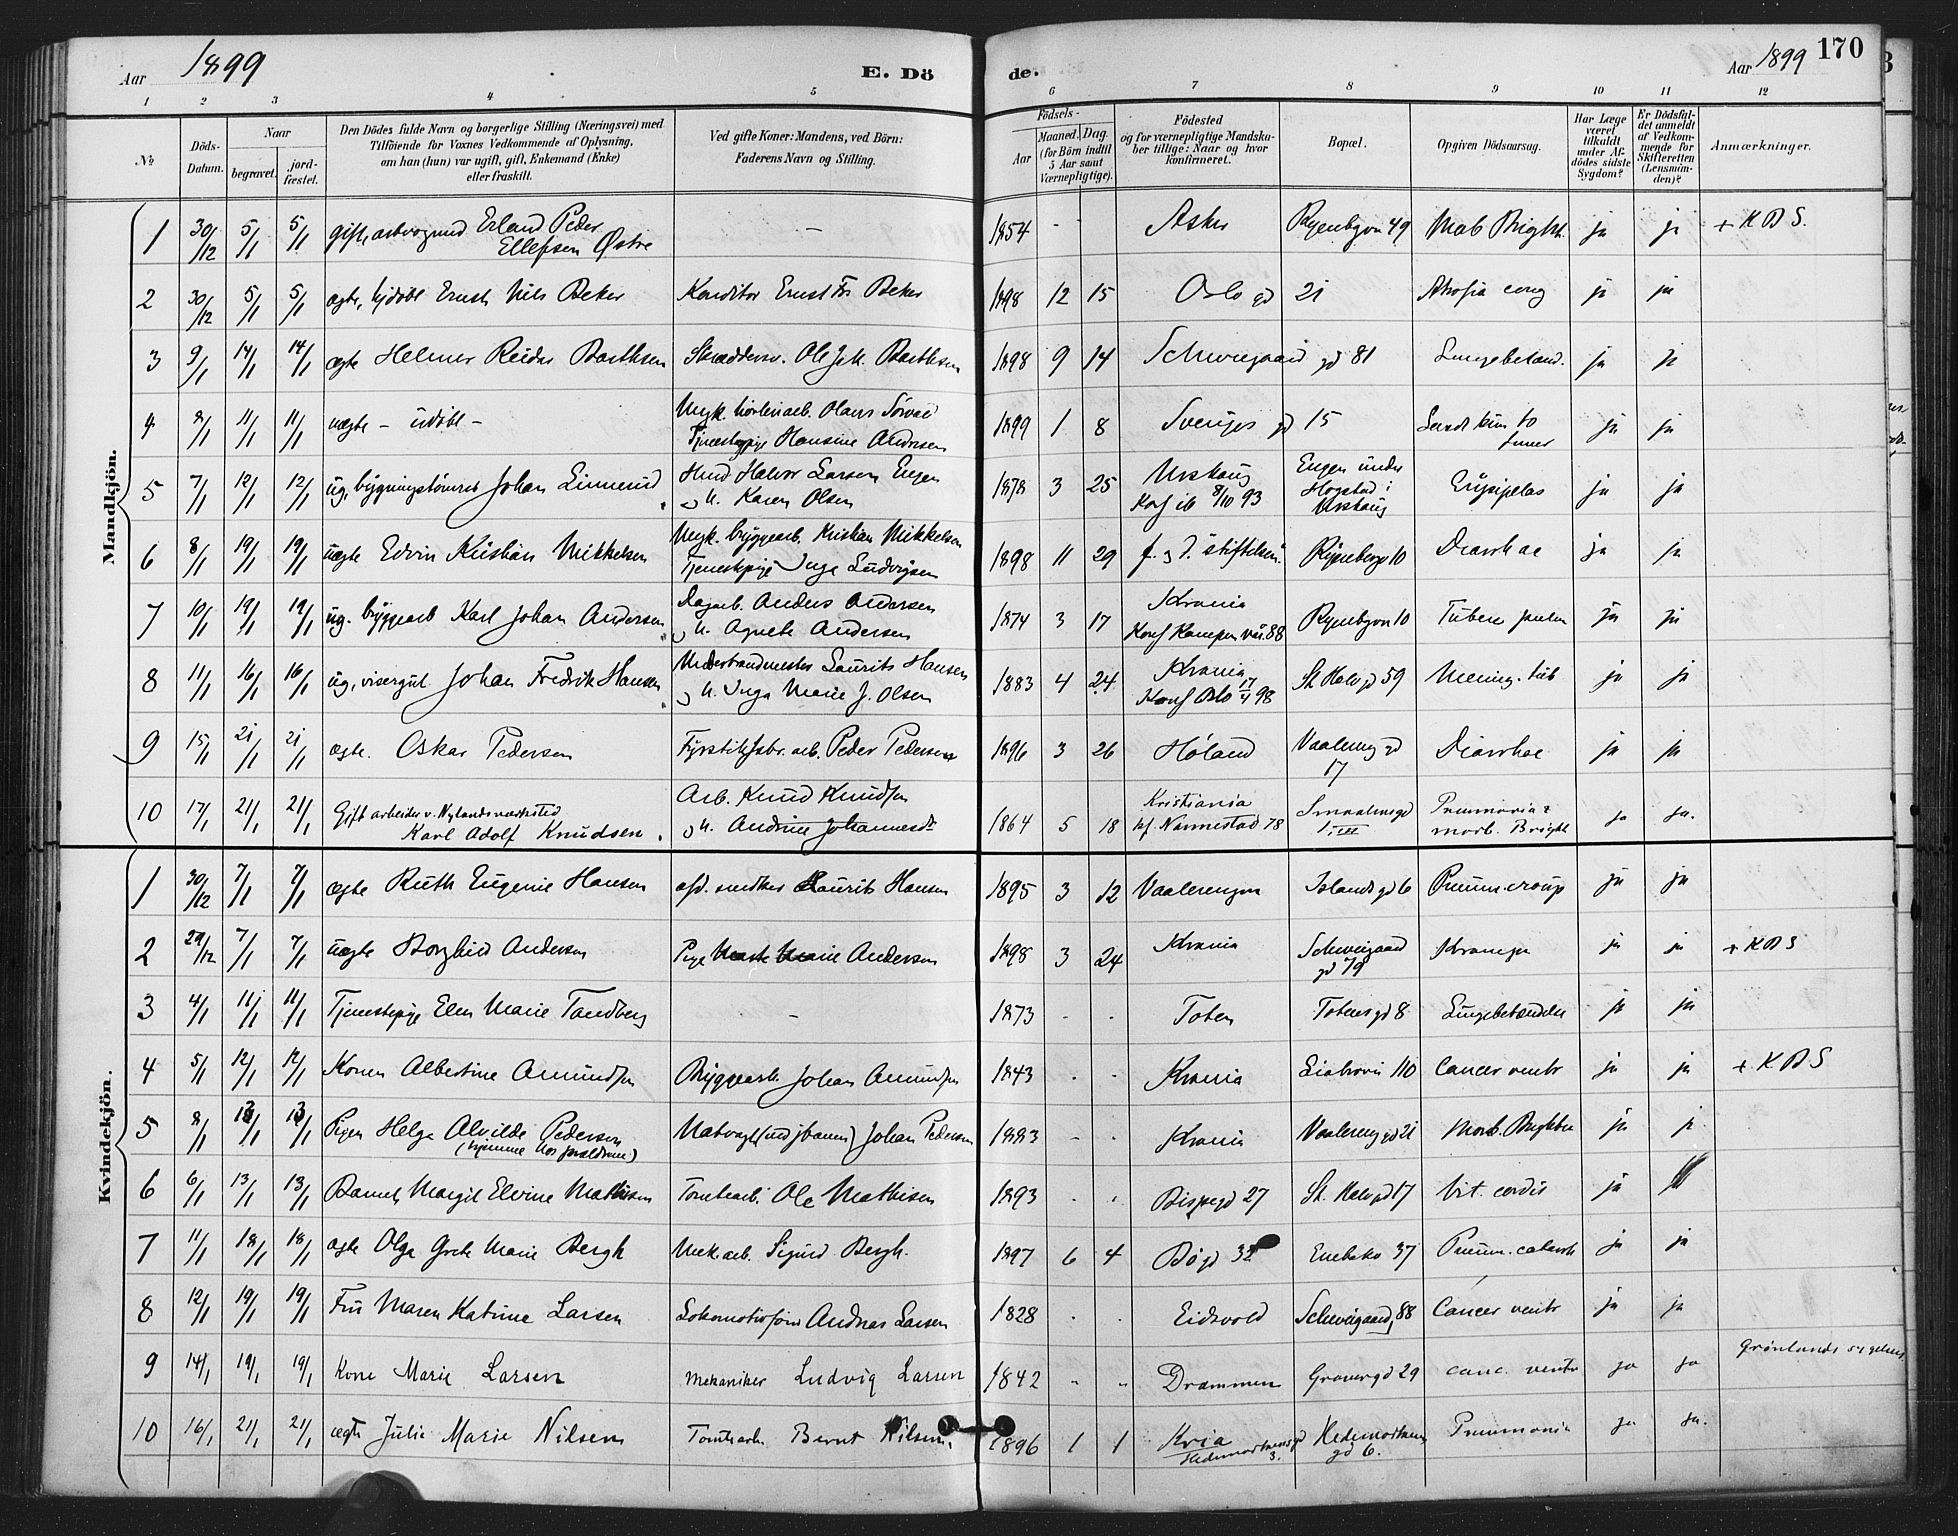 Aar 1899
E. Döde.
Aar 1899 170
1 2 3 4 5 6 7 8 9 10 11 12
№
Döds-Datum.
Naar
begravet.
jord-fæstet.
Den Dödes fulde Navn og borgerlige Stilling (Næringsvei) med
Tilföiende for Voxnes Vedkommende af Oplysning,
om han (hun) var ugift, gift, Enkemand (Enke)
eller fraskilt.
Ved gifte Koner: Mandens, ved Börn:
Faderens Navn og Stilling.
Födsels-
Aar
Maaned. Dag.
(for Börn indtil
5 Aar samt
Værnepligtige).
Födested
og for værnepligtige Mandska-
ber tillige: Naar og hvor
konfirmeret.
Bopæl.
Opgiven Dödsaarsag.
Har Læge
været
tilkaldt
under Af-
dödes sidste
Sygdom?
Er Dödsfal-
det anmeldt
af Vedkom-
mende for
Skifteretten
(Lensman-
den)?
Anmærkninger.
Mandkjön.
1 30/12 5/1 5/1 gift, Erland Peder Ellefsen Østre – 1854 - Asker 49 Morb Bright. ja ja + K B S.
2 30/12 5/1 5/1 ægte, hjdøbt Ernst Nils Beker Konditor Ernst Fr Beker 1898 12 15 Oslo gd 21 ja ja
3 9/1 14/1 14/1 ægte Helmer Reidar Barthsen Skræddersv. Ole Joh. Barthsen 1898 9 14 Schweigaard gd 81 Lungebetænd. ja ja
4 8/1 11/1 11/1 uægte – udöbt – Ungk. Olaus
Tjenestepige Hansine Andersen 1899 1 8 Sveriges gd 15 ja ja
5 7/1 12/1 12/1 ug. bygningstömrer Johan Linnerud Hmd Halvor Larsen Engen
o h. Karen Olsen 1878 3 25 Urskoug
Konf ib 8/10 93 Engen under
Hogstad i
Urskoug Erysipelas ja ja
6 8/1 19/1 19/1 uægte Edvin Kristian Mikkelsen Ungk. bryggearb. Kristian Mikkelsen
Tjenestepige Inga Ludvigsen 1898 11 29 f. o d. "stiftelsen" Rynebergv 10 Diarrhoe ja ja
7 10/1 19/1 19/1 ug. bryggearb Karl Johan Andersen Dagarb. Anders Andersen
o h. Agnete Andersen 1874 3 17 Krania
Konf Kampen vår. 88 10 Tuberc ja ja
8 11/1 16/1 16/1 ug, visergut Johan Fredrik Hansen Laurits Hansen
o h. Inga Marie J. Olsen 1883 4 24 Krania
Konf Oslo 17/4 98 St Halv gd 59 Mening. tub ja ja
9 15/1 21/1 21/1 ægte. Oskar Pedersen Fyrstikfabr. arb. Peder Pedersen 1896 3 26 Höland Vaalereng gd
17 Diarrhoe ja ja
10 17/1 21/1 21/1 Gift arbeider v. Nylands værksted
Karl Adolf Knudsen. Arb. Knud Knudsen
o h. Andrine Johannesdt 1864 5 18 Kristiania
kf. Nannestad 78 Smaalensgd
1, III Pneumonia &
morb. Bright ja ja.
Kvindekjön.
1 30/12 7/1 7/1 ægte Ruth Eugenie Hansen afd. snedker Laurits Hansen 1895 3 12 Vaalerengen Islands gd 6 Pneum. croup ja ja
2 29/12 7/1 7/1 uægte Borghild Andersen Pige Marie Andersen 1898 3 24 Krania Schweigaard
gd 79 Krampe ja ja + K B S
3 4/1 11/1 11/1 Tjenestepige Elen Marie Tandberg – 1873 - - Toten Totensgd 8 Lungebetændelse ja ja
4 5/1 12/1 12/1 Konen Albertine Amundsen Bryggearb. Johan Amundsen 1843 - - Krania 110 Cancer ventr ja ja + K B S
5 8/1 13/1 13/1 Pigen Helga Alvilde Pedersen
(hjemme hos foreldrene) Natvagt (ved jbanen) Johan Pedersen 1883 - - Krania Vaalereng gd 21 Morb. Brightii ja ja
6 6/1 13/1 13/1 Barnet Margit Elvine Mathisen Tomtearb. Ole Mathisen 1893 . . Bispegd 27 St. Halv gd 17 Vit. cordis ja
7 11/1 18/1 18/1 ægte Olga Grete Marie Bergh Mek arb. Sigurd Bergh. 1897 6 4 Bögd 32 Enebakv 37 Pneum. catarrh ja ja
8 12/1 19/1 19/1 Fru Maren Katrine Larsen Lokomotivform Andreas Larsen 1828 . . Eidsvold Schweigaardg 88 Cancer ventr ja ja
9 14/1 19/1 19/1 Kone Marie Larsen mekaniker Ludvig Larsen 1842 - - Drammen 29 canc. ventr ja ja Grønlands sygehus
10 16/1 21/1 21/1 ægte Julie Marie Nilsen Tomtearb. Bernt Nilsen. 1896 1 1 Kria
Hedemarkensgd
3. Hedemarkens
gd 6. Pneumonia ja ja.